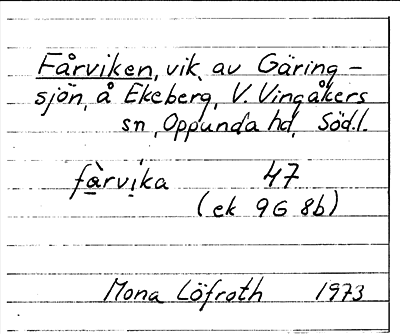 Fårviken, vik, av Gäring-
sjön, å Ekeberg, V. Vingåkers
sn, Oppunda hd, Södl.
fàrvika 47
(ek 9G 8b)
Mona Löfroth 1973